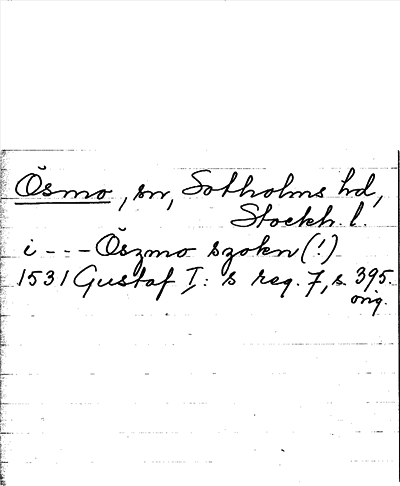 Ösmo, sn, Sotholms hd,
Stockh. l.
i --- Öszmo szokn (!)
1531 Gustaf I: s reg. 7, s. 395.
orig.